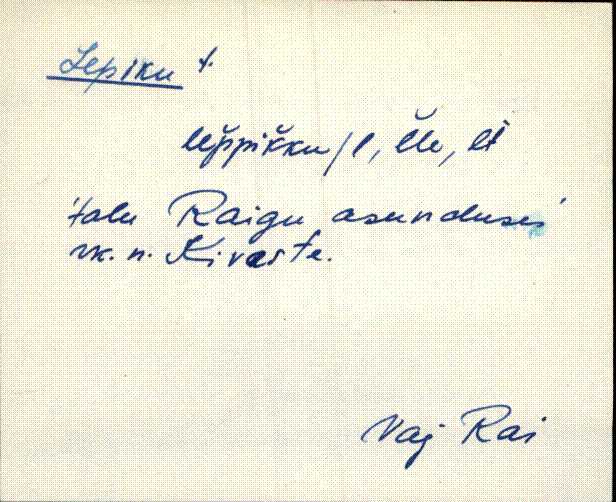 Lepiku t.
lep̆pik̆ku/l, l̆le, lt
'talu Raigu asunduses'
vk. n. Kivaste.
Vaj Rai